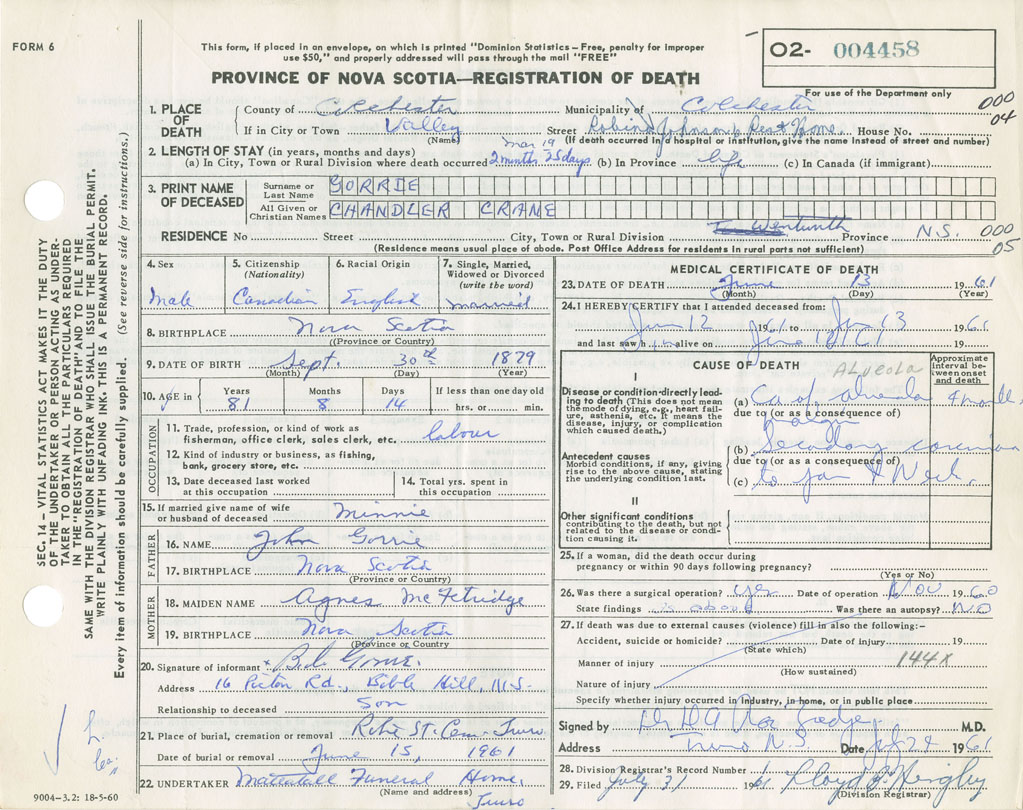 FORM 6
This form, if placed in an envelope, on which is printed "Dominion Statistics – Free, penalty for improper
use $50," and properly addressed will pass through the mail "FREE"
PROVINCE OF NOVA SCOTIA—REGISTRATION OF DEATH
O2- 004458
For use of the Department only
000
04
1. PLACE OF DEATH
County of Colchester Municipality of Colchester
If in City or Town Valley Street Johnson's Rest Home House No.
(Name) (If death occurred in a hospital or institution, give the name instead of street and number)
2. LENGTH OF STAY (in years, months and days)
Mar 19
(a) In City, Town or Rural Division where death occurred 2 months 25 days (b) In Province life (c) In Canada (if immigrant)
3. PRINT NAME OF DECEASED
Surname or Last Name GORRIE
All Given or Christian Names CHANDLER CRANE
RESIDENCE No. Street City, Town or Rural Division Wentworth Province N.S. 000
05
(Residence means usual place of abode. Post Office Address for residents in rural parts not sufficient)
4. Sex
Male
5. Citizenship
(Nationality)
Canadian
6. Racial Origin
English
7. Single, Married,
Widowed or Divorced
(write the word)
married
8. BIRTHPLACE Nova Scotia
(Province or Country)
9. DATE OF BIRTH Sept. 30th 1879
(Month) (Day) (Year)
10. AGE in
Years Months Days If less than one day old
81 8 14 hrs. or min.
OCCUPATION
11. Trade, profession, or kind of work as
fisherman, office clerk, sales clerk, etc. labour
12. Kind of industry or business, as fishing,
bank, grocery store, etc.
13. Date deceased last worked
at this occupation
14. Total yrs. spent in
this occupation
15. If married give name of wife
or husband of deceased Minnie
FATHER
16. NAME John Gorrie
17. BIRTHPLACE Nova Scotia
(Province or Country)
MOTHER
18. MAIDEN NAME Agnes McFetridge
19. BIRTHPLACE Nova Scotia
(Province or Country)
20. Signature of informant x Gorrie
Address 16 Pictou Rd., Bible Hill, N.S.
Relationship to deceased Son
21. Place of burial, cremation or removal Robie St. Cem. Truro
Date of burial or removal June 15, 1961
22. UNDERTAKER Mattatall Funeral Home,
(Name and address) Truro
MEDICAL CERTIFICATE OF DEATH
23. DATE OF DEATH June 13 1961
(Month) (Day) (Year)
24. I HEREBY CERTIFY that I attended deceased from:
Jun 12 1961 to Jun 13 1961
and last saw him alive on 19
CAUSE OF DEATH
ALVEOLA
Approximate
interval be-
tween onset
and death
I
Disease or condition directly lead-
ing to death (This does not mean
the mode of dying, e.g., heart fail-
ure, asthenia, etc. It means the
disease, injury, or complication
which caused death.)
(a) Ca of
due to (or as a consequence of)
Antecedent causes
Morbid conditions, if any, giving
rise to the above cause, stating
the underlying condition last.
(b)
due to (or as a consequence of)
(c) to jaw & Neck.
II
Other significant conditions
contributing to the death, but not
related to the disease or condi-
tion causing it.
25. If a woman, did the death occur during
pregnancy or within 90 days following pregnancy?
(Yes or No)
26. Was there a surgical operation? Yes Date of operation Nov 1960
State findings as above Was there an autopsy? NO
27. If death was due to external causes (violence) fill in also the following:-
Accident, suicide or homicide? Date of injury 19
(State which)
Manner of injury 144X
(How sustained)
Nature of injury
Specify whether injury occurred in industry, in home, or in public place
Signed by M.D.
Address Truro N.S. Date 1961
28. Division Registrar's Record Number
29. Filed July 31 1961 Lloyd
(Division Registrar)
SEC. 14 – VITAL STATISTICS ACT MAKES IT THE DUTY
OF THE UNDERTAKER OR PERSON ACTING AS UNDER-
TAKER TO OBTAIN ALL THE PARTICULARS REQUIRED
IN THE "REGISTRATION OF DEATH" AND TO FILE THE
SAME WITH THE DIVISION REGISTRAR WHO SHALL ISSUE THE BURIAL PERMIT.
WRITE PLAINLY WITH UNFADING INK. THIS IS A PERMANENT RECORD.
Every item of information should be carefully supplied. (See reverse side for instructions.)
9004-3.2: 18-5-60